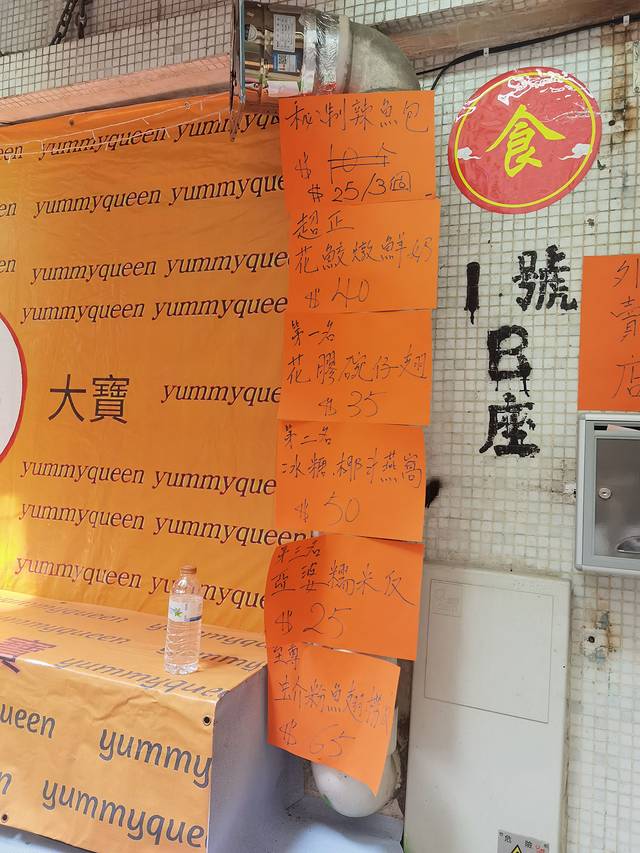 yummyqueen yummyqueen
yummyqueen yummyque
yummyqueen yummyque
yummyqueen yummyque
大寶
yummyque
yummyqueen yummyque
yummyqueen yummyque
yummyqueen yummyque
queen
yummy
yummyque
秘制辣魚包
$ 10/个
$25/3個
超正
花鮫燉鮮奶
$40
第一名
花膠碗仔翅
$35
第二名
冰糖椰汁燕窩
$50
第三名
盐婆糯米飯
$25
至尊
$65
食
1號
B
座
外
賣
店
危險